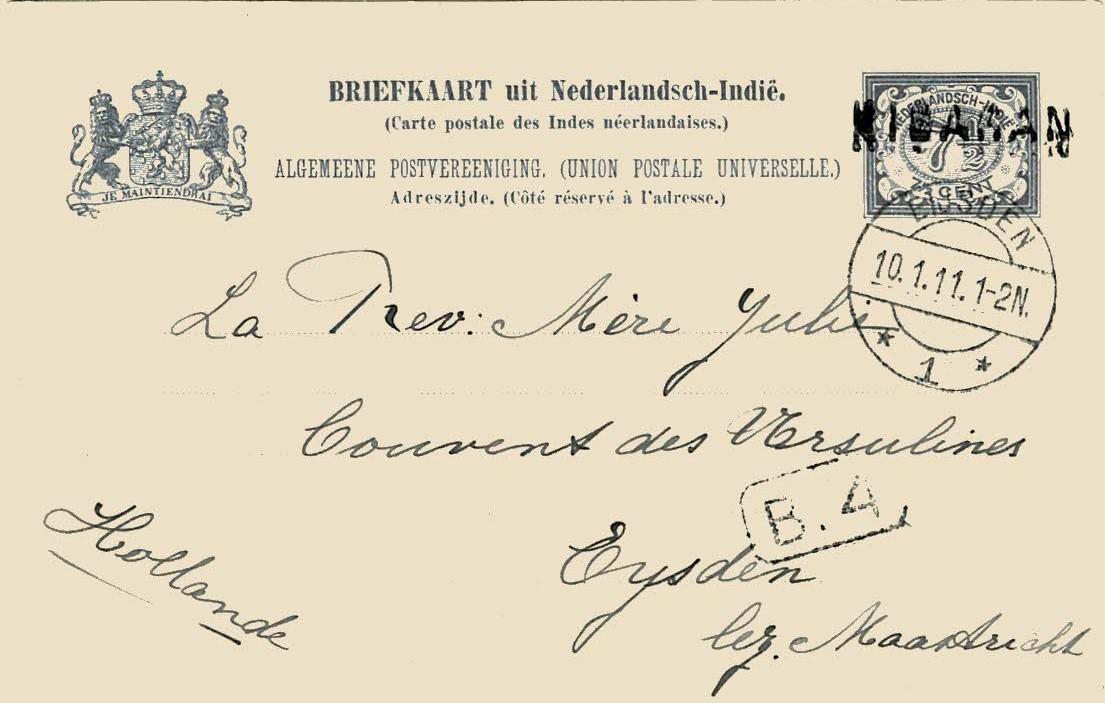 BRIEFKAART uit Nederlandsch-Indië.
(Carte postale des Indes néerlandaises.)
ALGEMEENE POSTVEREENIGING. (UNION POSTALE UNIVERSELLE.)
Adreszijde. (Côté réservé à l'adresse.)
JE MAINTIENDRAI
NEDERLANDSCH-INDIË
7 1/2
CENT
EIJSDEN
10.1.11. 1-2N.
* 1 *
La Rev: Mère Julie
Couvent des Ursulines
B. 4
Eysden
lez. Maastricht
Hollande